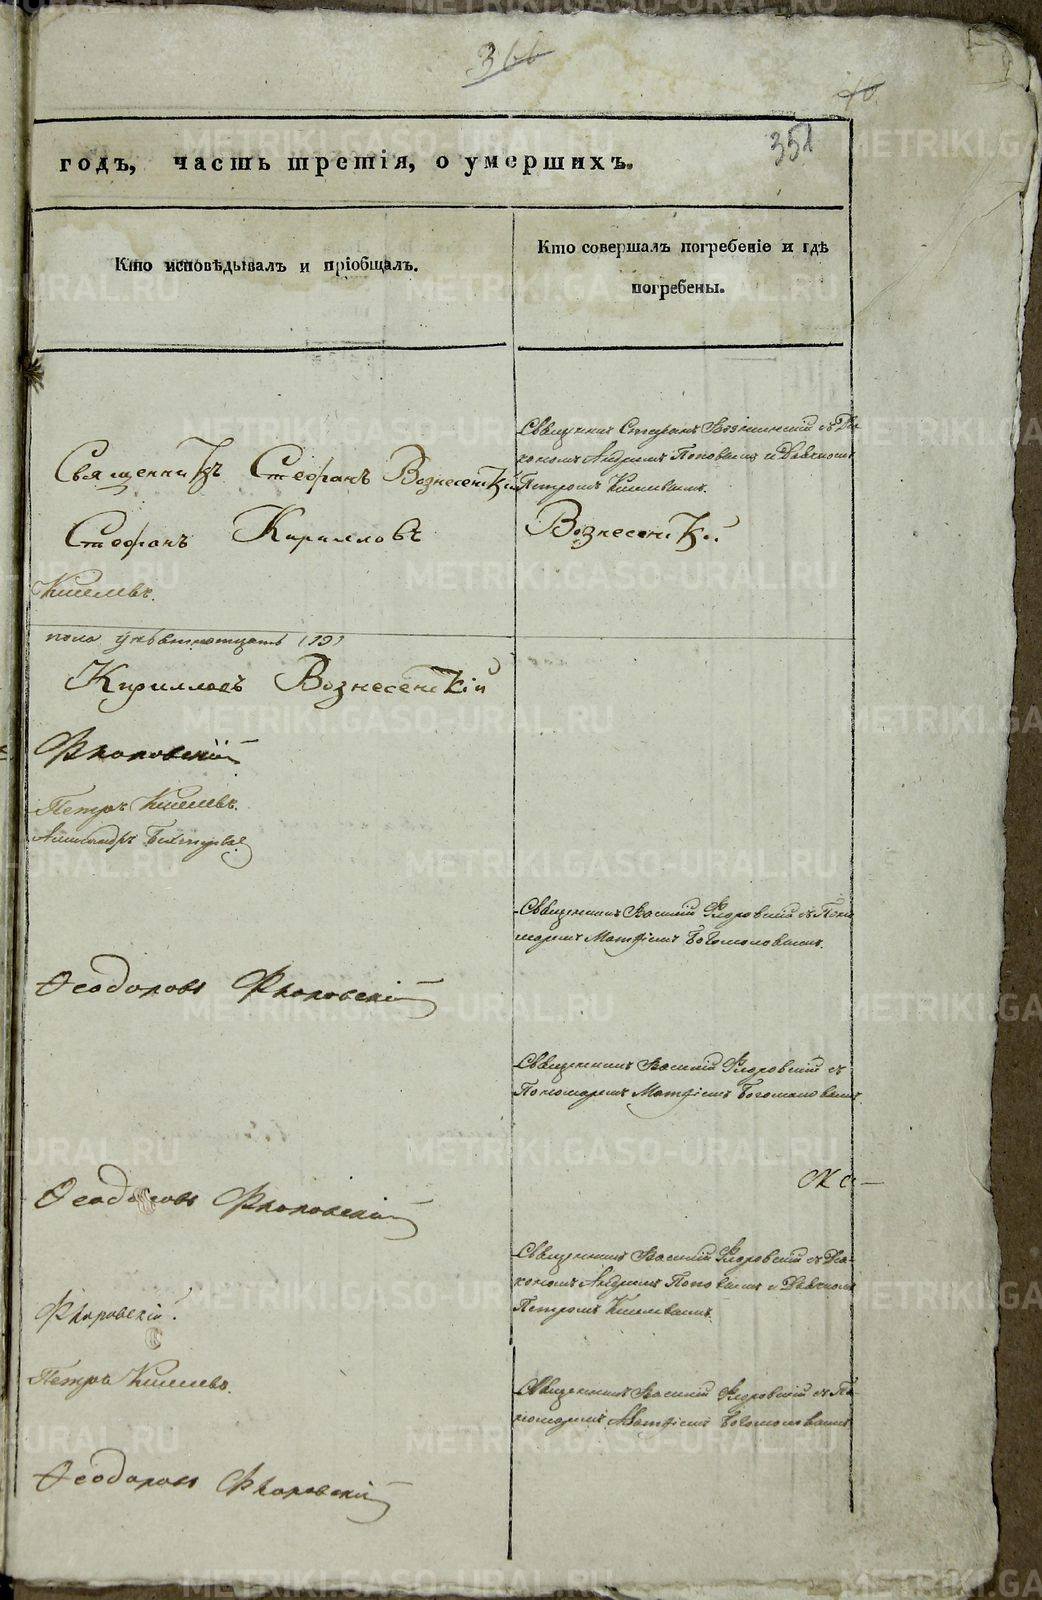 366
40
351
годъ, часть третія, о умершихъ.
Кто исповѣдывалъ и пріобщалъ.
Кто совершалъ погребеніе и гдѣ
погребены.
Священникъ Стефанъ Вознесенскій съ Діа
кономъ Андреемъ Поповымъ и Дьячкомъ
Петромъ Киселевымъ.
Священникъ Стефанъ Вознесенскій
Стефанъ Кирилловъ
Вознесенскій
Киселевъ.
пола девятнатцать (19)
Кирилловъ Вознесенскій
Флоровскій
Петръ Киселевъ.
Александръ
Священникъ Василій Флоровскій съ Поно
маремъ Матфіемъ Богомоловымъ.
Феодоровъ Флоровскій
Священникъ Василій Флоровскій съ
Пономаремъ Матфіемъ Богомоловымъ.
Феодоровъ Флоровскій
Священникъ Василій Флоровскій съ Діа-
кономъ Андреемъ Поповымъ и Дьячкомъ
Петромъ Киселевымъ.
Флоровскій.
Петръ Киселевъ.
Священникъ Василій Флоровскій съ По
номаремъ Матфіемъ Богомоловымъ
Феодоровъ Флоровскій
METRIKI.GASO-URAL.RU